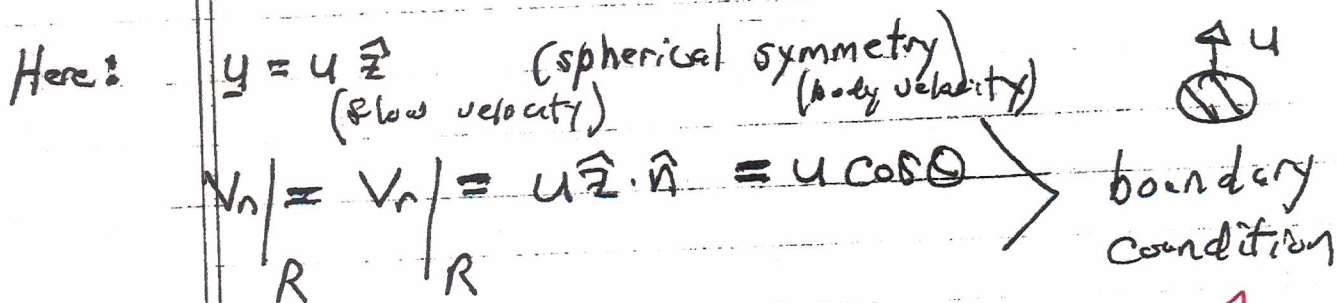 Here: u = u ẑ (spherical symmetry) u
(flow velocity) (body velocity)
Vn| = Vr| = u ẑ · n̂ = u cos θ boundary
R R coundition